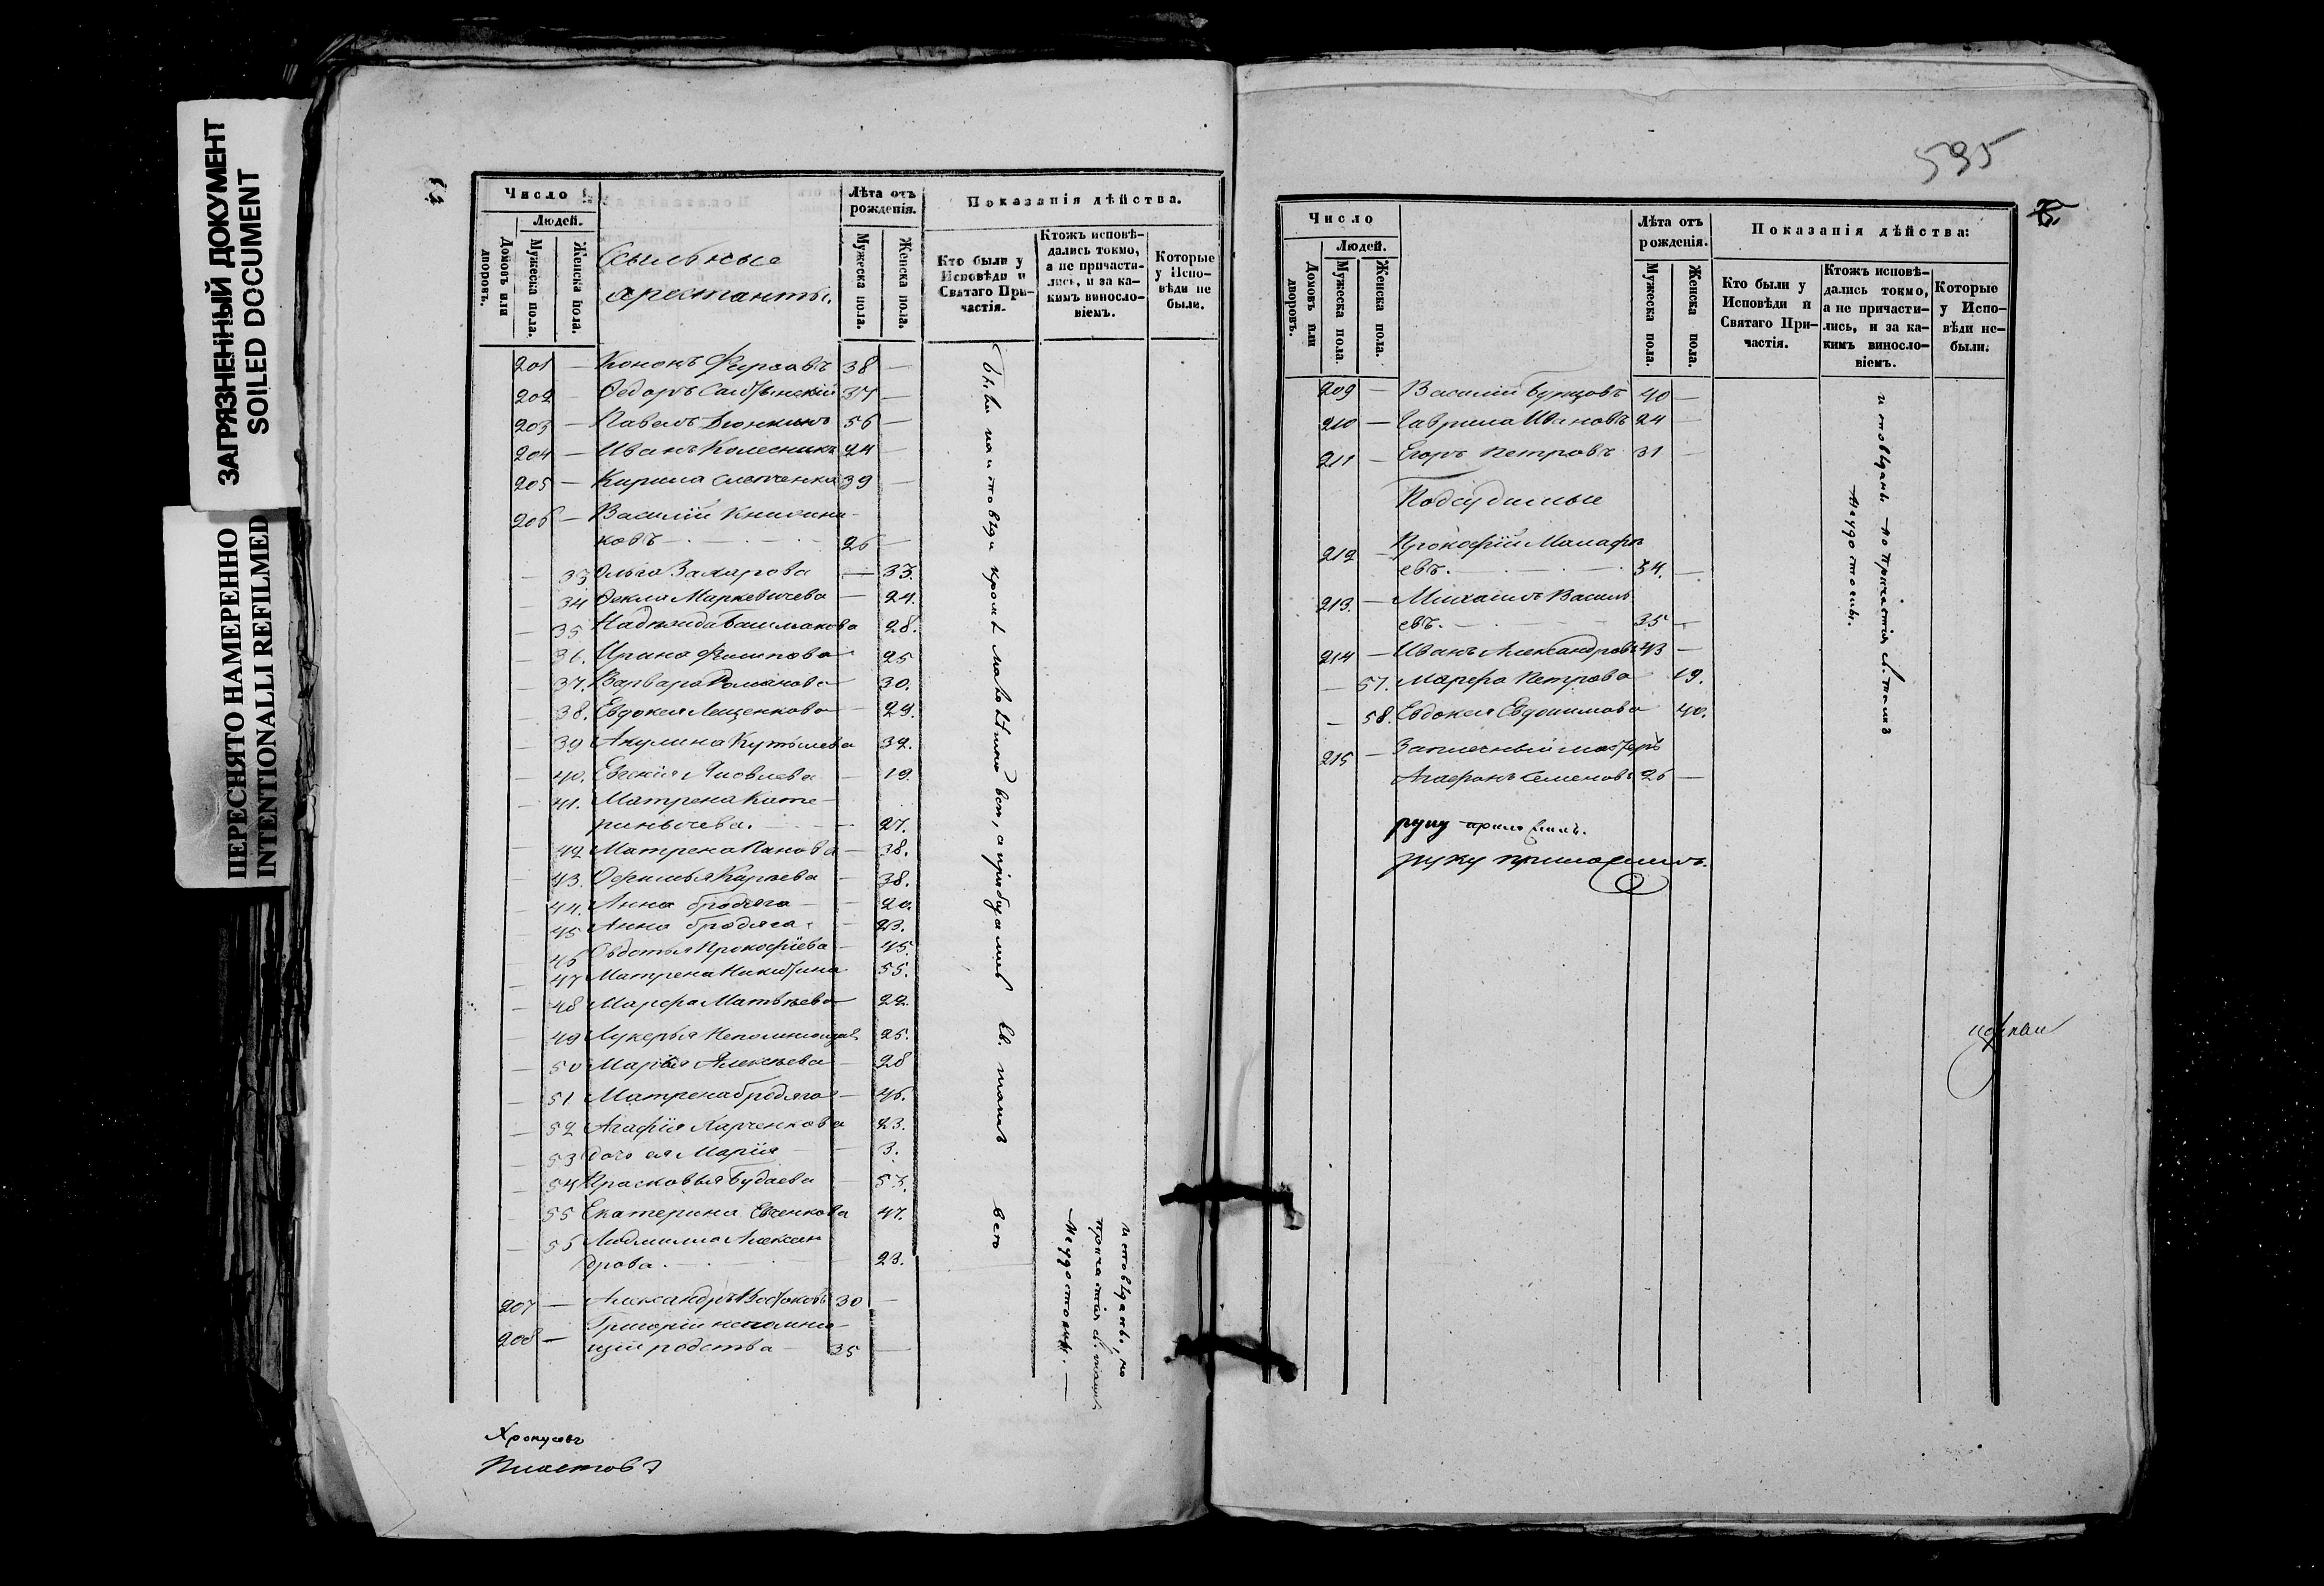 ЗАГРЯЗНЕННЫЙ ДОКУМЕНТ
SOILED DOCUMENT
ПЕРЕСНЯТО НАМЕРЕННО
INTENTIONALLI REFILMED
Число
Людей.
Домовъ или дворовъ.
Мужеска пола.
Женска пола.
Ссыльные
арестанты.
Лѣта отъ рожденія.
Мужеска пола.
Женска пола.
Показанія дѣйства.
Кто были у Исповѣди и Святаго При-частія.
Ктожъ исповѣ-дались токмо, а не причасти-лись, и за ка-кимъ винословіемъ.
Которые у Испо-вѣди не были.
201 — Кононъ Фирсовъ 38 —
202 — Федоръ 37 —
203 — Павелъ 56 —
204 — Иванъ Колесникъ 24 —
205 — Кирила 39 —
206 — Василій
ковъ 26 —
— 33 Ольга Захарова — 33.
— 34 Фекла Маркевичева — 24.
— 35 Надежда Башмакова 28.
— 36. Ирина Филипова 25
— 37. Варвара Романова 30.
— 38. Евдокея Лещенкова 29.
— 39 Акулина Кутышева 32.
— 40. Евгенія Яковлева — 19.
— 41. Матрена Кате-
риничева. — 27.
— 42 Матрена Панова — 38.
— 43. Офимья Карпева — 38.
— 44. Анна бродяга — 20.
— 45 Анна бродяга — 23.
— 46 Овдотья Прокофіева — 45.
— 47 Матрена Никитина 55.
— 48 Марфа Матвѣева 22.
— 49 Лукерья Непомнющая 25.
— 50 Марья Алексѣева 28
— 51 Матрена бродяга — 46.
— 52 Агафія Харченкова 23.
— 53 дочь ея Марія — 3.
— 54 Прасковья Будаева — 53.
— 55 Екатерина Евченкова 47.
— 56 Людмилла Алексан
дрова. 23.
207 — Александръ Востоковъ 30 —
208 — Григорій непомня-
щій родства 35 —
были на исповѣди кромѣ малолѣтнихъ всѣ, а причащались св. таинъ всего
исповѣданъ, но
причастія св. таинъ
неудостоенъ. —
Пластовъ
595
Число
Людей.
Домовъ или дворовъ.
Мужеска пола.
Женска пола.
Лѣта отъ рожденія.
Мужеска пола.
Женска пола.
Показанія дѣйства:
Кто были у Исповѣди и Святаго При-частія.
Ктожъ исповѣ-дались токмо, а не причасти-лись, и за ка-кимъ винословіемъ.
Которые у Испо-вѣди не-были.
209 — Василій Бурцовъ 40 —
210 — Гаврила Ивановъ 24 —
211 — Егоръ Петровъ 31 —
Подсудимые
212 — Прокофій Малафе
евъ. 34. —
213. — Михаилъ Василь
евъ. 35 —
214 — Иванъ Александровъ 43 —
— 57. Марфа Петрова 19.
— 58. Евдокея Евдокимова 40.
215 — Заплечный мастеръ
Агафонъ Семеновъ 26 —
руку приложилъ.
руку приложилъ.
исповѣданъ но причастія св. таинъ
неудостоенъ.